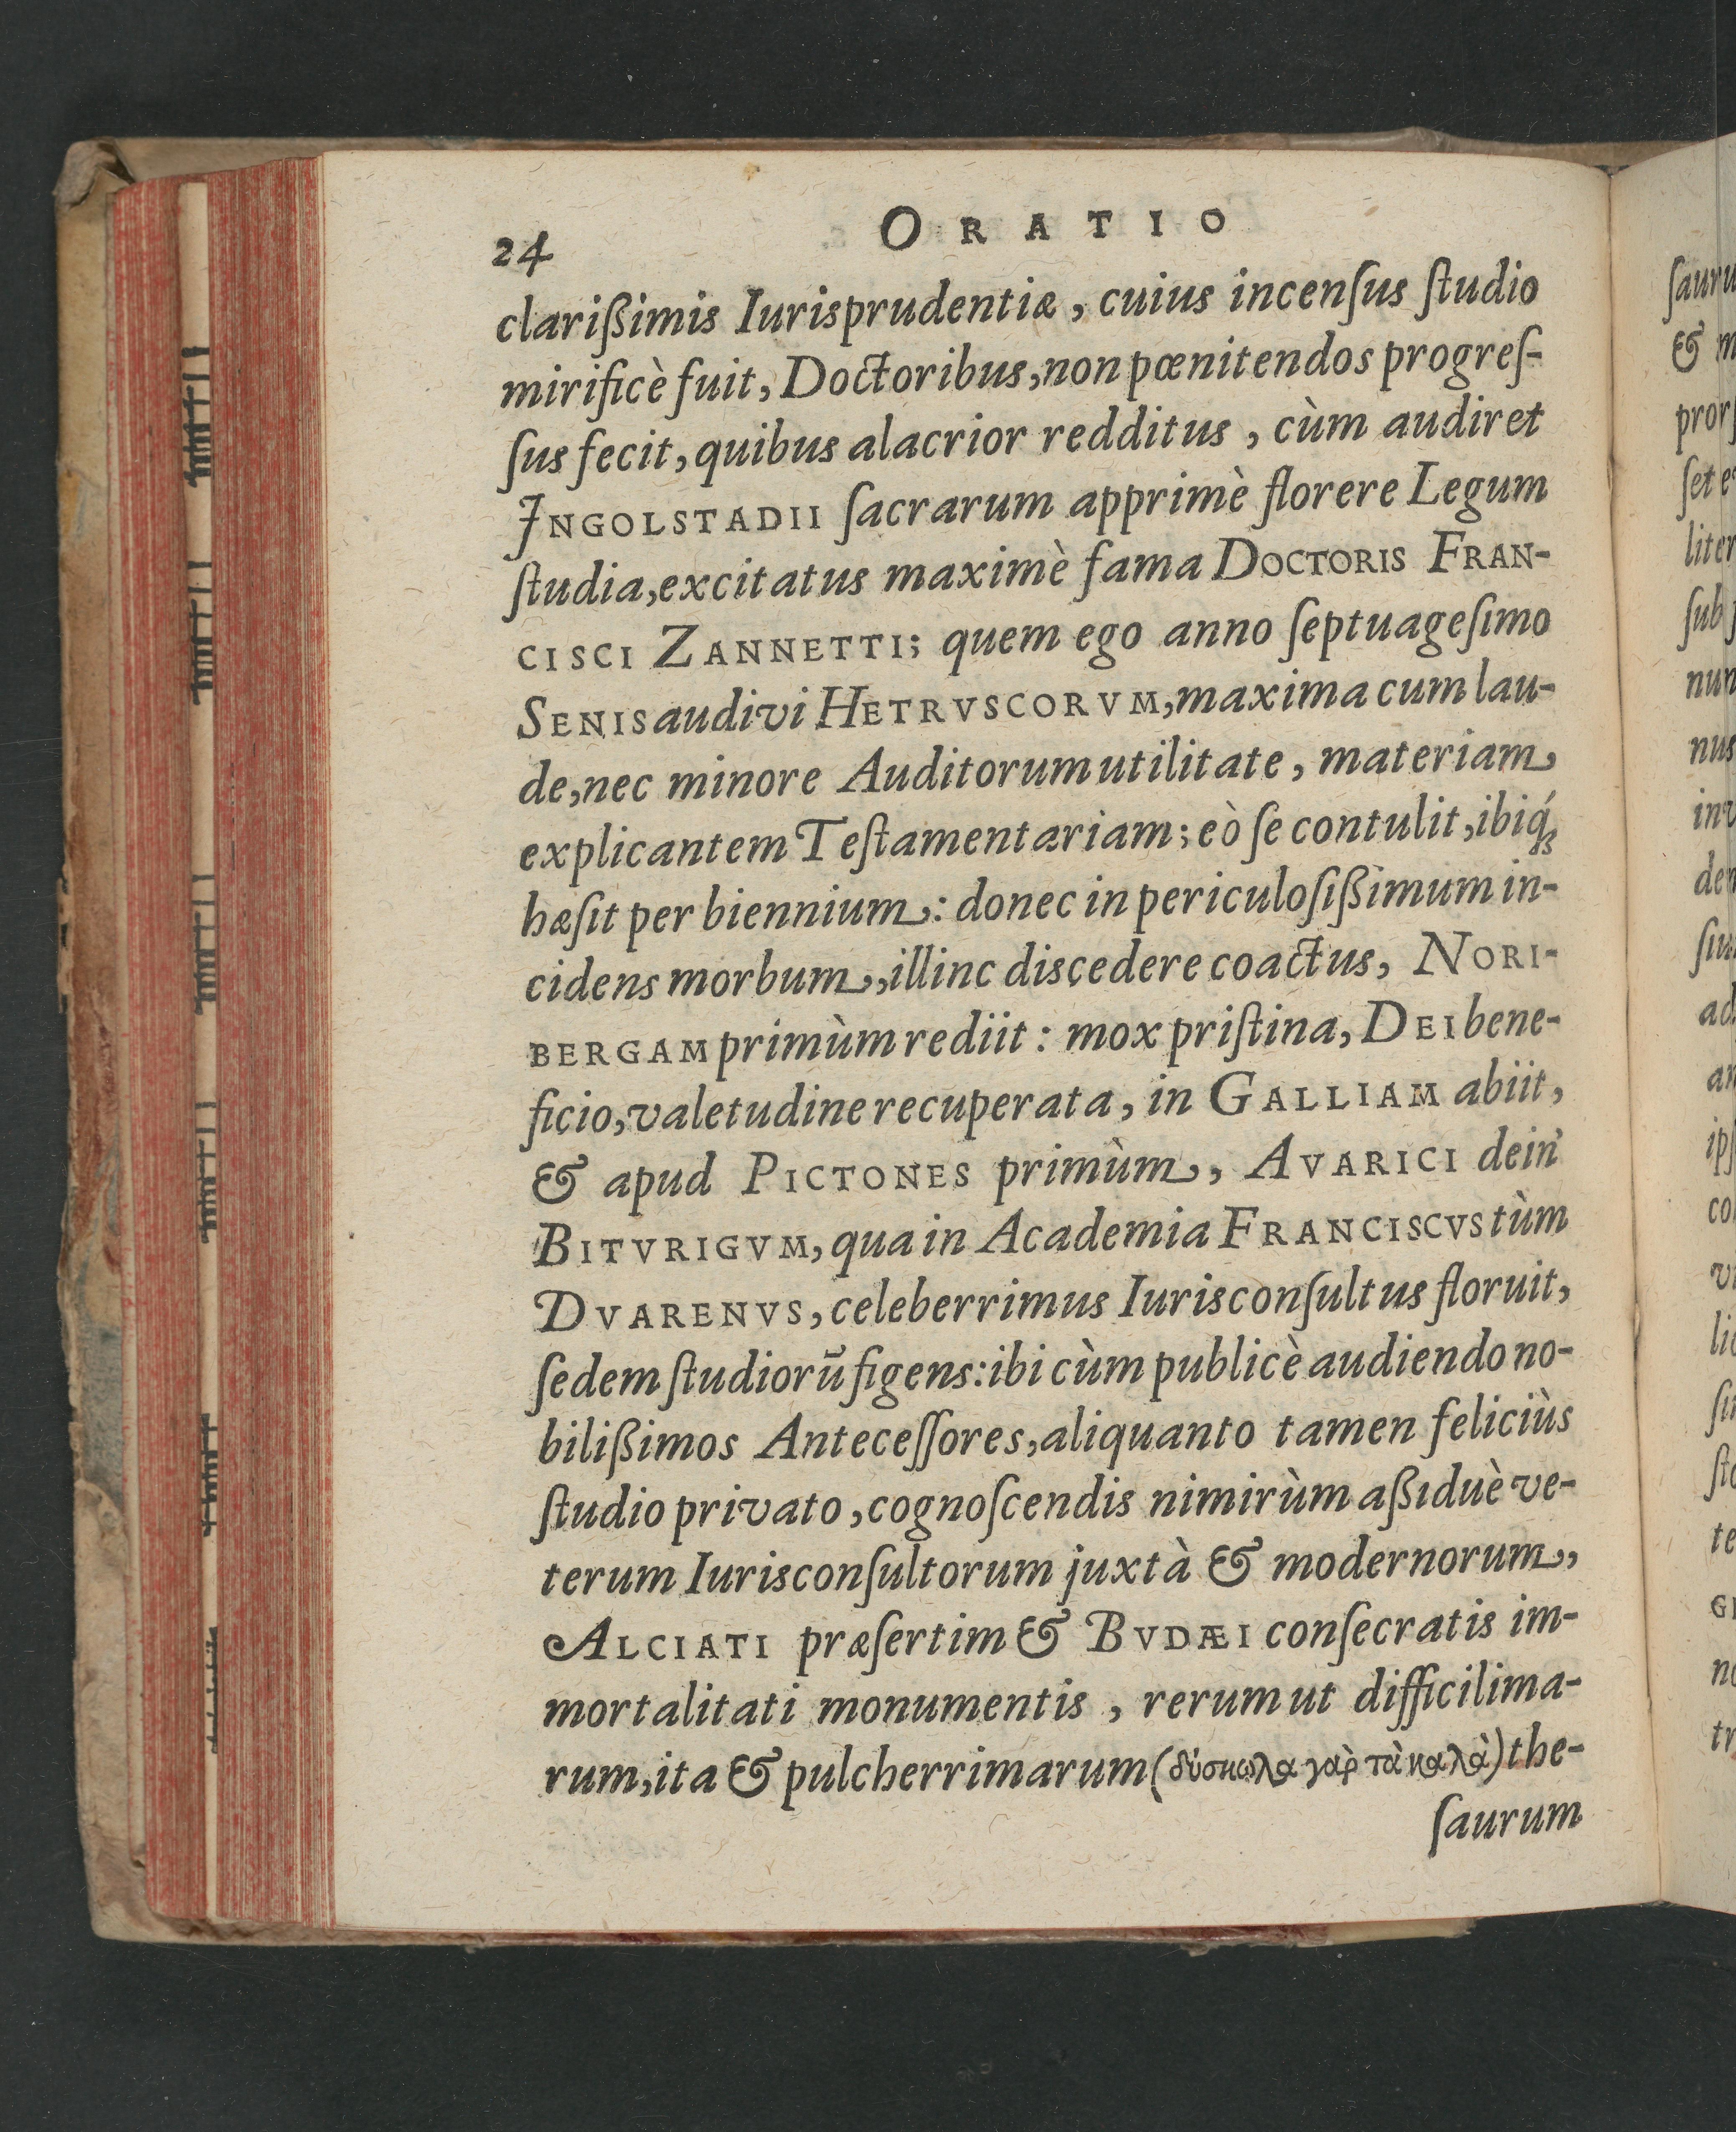 24 ORATIO
clarißimis Iurisprudentiæ, cuius incenſus ſtudio
mirificè fuit, Doctoribus, non pœnitendos progreſ-
ſus fecit, quibus alacrior redditus, cùm audiret
INGOLSTADII ſacrarum apprimè florere Legum
ſtudia, excitatus maximè fama DOCTORIS FRAN-
CISCI ZANNETTI; quem ego anno ſeptuageſimo
SENIS audivi HETRVSCORVM, maxima cum lau-
de, nec minore Auditorum utilitate, materiam
explicantem Teſtamentariam; eò ſe contulit, ibiq́;
hæſit per biennium: donec in periculoſißimum in-
cidens morbum, illinc discedere coactus, NORI-
BERGAM primùm rediit: mox priſtina, DEI bene-
ficio, valetudine recuperata, in GALLIAM abiit,
& apud PICTONES primùm, AVARICI dein'
BITVRIGVM, qua in Academia FRANCISCVS tùm
DVARENVS, celeberrimus Iurisconſultus floruit,
ſedem ſtudiorũ figens: ibi cùm publicè audiendo no-
bilißimos Anteceſſores, aliquanto tamen feliciùs
ſtudio privato, cognoſcendis nimirùm aßiduè ve-
terum Iurisconſultorum juxtà & modernorum,
ALCIATI præſertim & BVDÆI conſecratis im-
mortalitati monumentis, rerum ut difficilima-
rum, ita & pulcherrimarum (δύσκωλα γὰρ τὰ καλὰ) the-
ſaurum